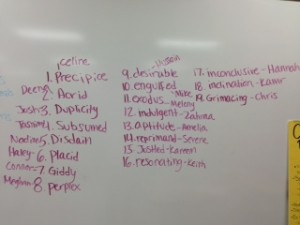 celine
1. Precipice
2. Acrid
Josh 3. Duplicity
4. Subsumed
5. Disdain
6. Placid
Connor 7. Giddy
Meghan 8. perplex
9. desirable
10. engulfed
11. exodus - Mike
Melony
12. indulgent - Zahna
13. Aptitude - Amelia
14. reprimand - Serene
15. Jostled - Karren
16. resonating - Keith
17. inconclusive - Hannah
18. inclination - Kamir
19. Grimacing - Chris